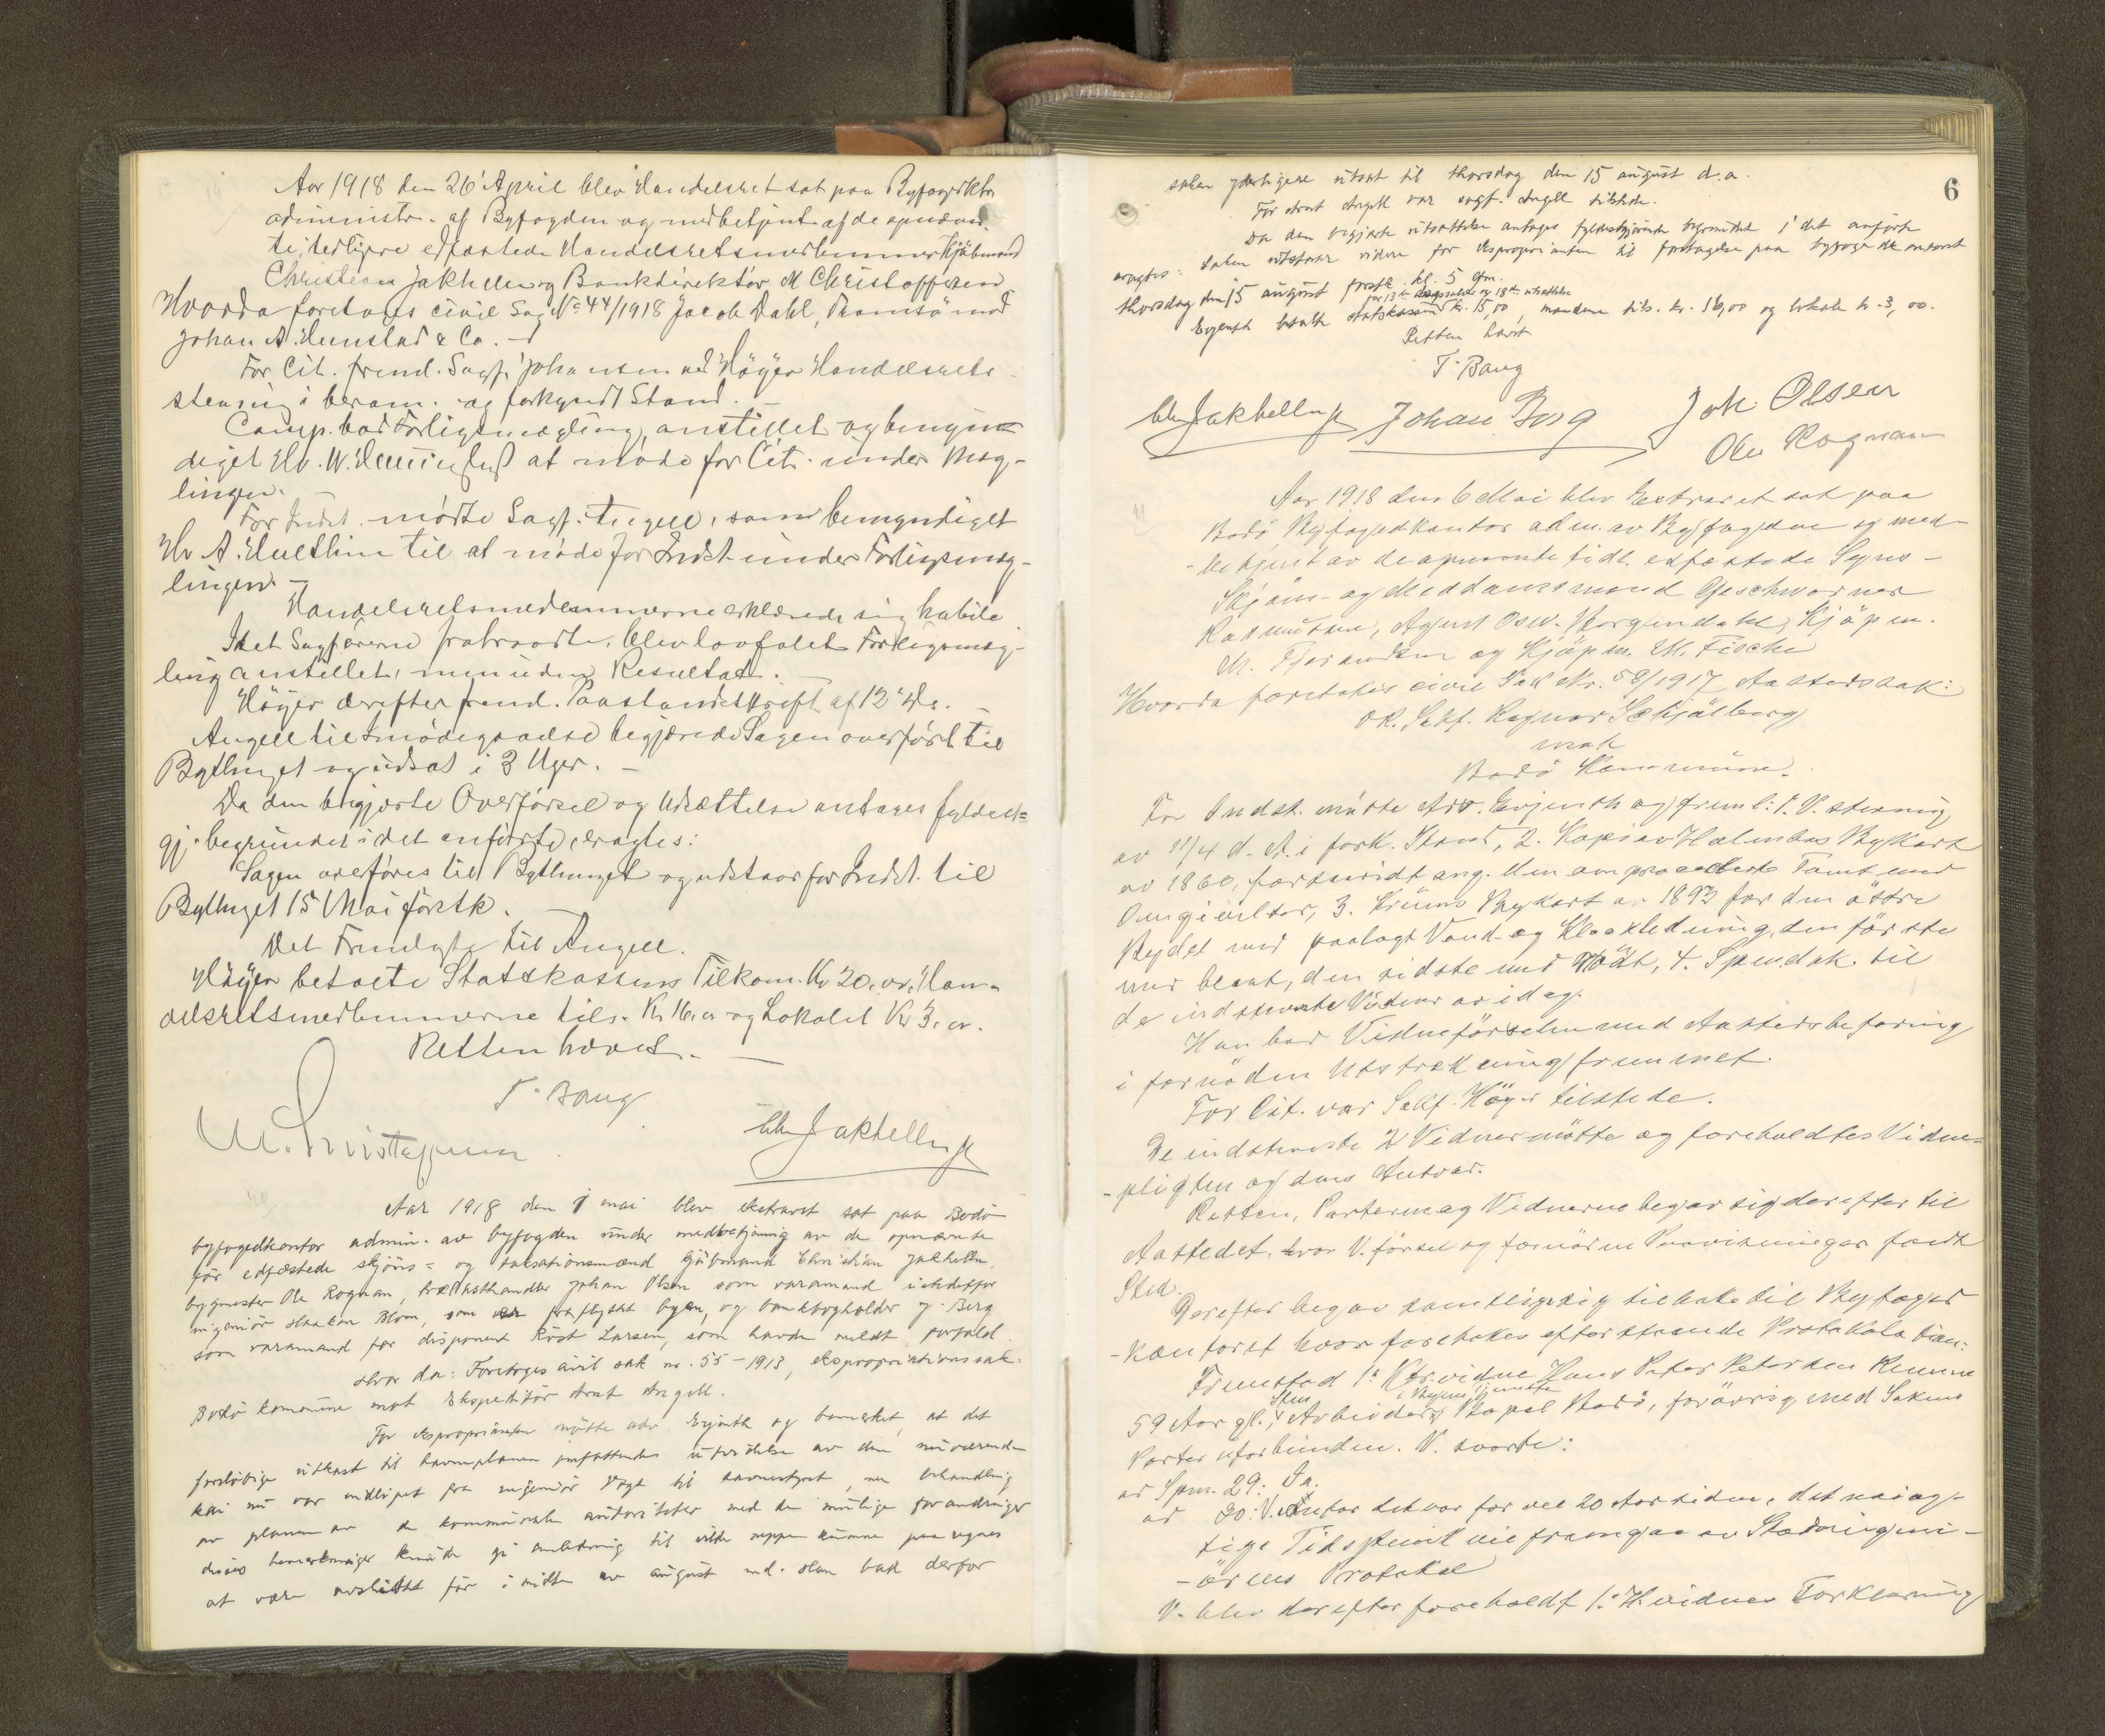 Aar 1918 den 26' April blev Handelsret sat paa Byfogedktr.
administr. af Byfogden og medbetjent af de opnævn-
te, tidligere edfæstede Handelsretsmedlemmer Kjöbmand
Christian Jakhelln og Bankdirektör M Christoffersen
Hvorda foretoges civil Sag No 44/1918 Jacob Dahl, Tromsö mod
Johan A. Hunstad & Co. -
For Cit. freml. Sagf. Johansen ved Höyer Handelsrets-
stevning i beram. og forkyndt Stand. -
Comp. bad Forligsmægling anstillet og bemyn-
diget Hr. W. at møde for Cit. under Mæg-
lingen.
For Indst. mødte Sagf. Angell, som bemyndiget
Hr A. til at møde for Indst under Forligsmæg-
lingen -
Handelsretsmedlemmerne erklærede sig habile
Idet Sagførerne fratraadte, blev lovbefalet Forligsmæg-
ling anstillet, men uden Resultat. -
Höyer derefter freml. Paastandsskrift af 12 ds. -
Angell til Imødegaaelse begjærede Sagen overført til
Bythinget og udsat i 3 Uger. -
Da den begjærte Overførsel og Udsættelse antages fyldest=
gj. begrundet i det anførte, eragtes:
Sagen overføres til Bythinget og udstaar for Indst. til
Bythinget 15 Mai førstk. -
Det Fremlagte til Angell.
Höyer betalte Statskassens Tilkom. Kr 20,00, Han-
delsretsmedlemmerne tils. Kr 16,00 og Lokalet Kr 3,00.
Retten hævet. -
T. Bang
M. Christoffersen
Chr Jakhelln jr
Aar 1918 den 1 mai blev ekstraret sat paa Bodö
byfogedkontor admin. av byfogden under medbetjening av de opnævnte
för edfæstede skjöns= og taksationsmænd kjöbmand Christian Jakhelln,
bygmester Ole Rognan, trælasthandler Johan Olsen som varamand istedetfor
ingeniör Haakon Blom, som er fraflyttet byen, og bankbogholder J. Berg
som varamand for disponent Röst Larsen, som havde meldt forfald.
Hvor da: Foretoges civil sak nr. 55-1913, ekspropriationssak:
Bodö kommune mot Ekspeditör Arnt Angell.
For eksproprianten mötte adv. Evjenth og bemerket, at det
forelöbige utkast til havneplanen omfattende utvidelse av den nuværende
kai nu var indlöpet fra ingeniör Vogt til havnestyret, men behandling
av planen av de kommunale autoriteter med de mulige forandringer
disses bemerkninger kunde gi anledning til vilde neppe kunne paaregnes
at være avsluttet för i midten av august md. Han bad derfor
6
saken yderligere utsat til thorsdag den 15 august d.a.
For Arnt Angell var sagf. Angell tilstede.
Da den begjærte utsættelse antages fyldestgjörende begrundet i det anförte
eragtes: Saken utstaar videre for eksproprianten til foretagelse paa byfogedkontoret
thorsdag den 15 august førstk. kl. 5 em.
for 13de dagssæte og 18de utsættelse
Evjenth betalte statskassen kr. 15,00, mændene tils. kr. 16,00 og lokale kr. 3,00.
Retten hævet
T. Bang
Chr Jakhelln jr Johan Berg Joh. Olsen
Ole Rognan
Aar 1918 den 6 Mai blev Extraret sat paa
Bodö Byfogedkontor adm. av Byfogden og med-
-betjent av de opnævnte tidl. edfæstede Syns-
Skjöns- og Meddomsmænd Geschworner
Rasmussen, Agent Osw. Kjöpm.
M. og Kjöpm. M. Fische
Hvorda foretokes civil Sak Nr. 58/1917, Aastedssak:
OR. Sakf. Ragnar Schjölberg
mot
Bodö Kommune.
For Indst. mötte Adv. Evjenth og freml: 1. V. stevning
av 11/4 d. A. i fork. Stand, 2. Kopi av Holmboes Bykart
av 1860, forsaavidt ang. den omprocederte Tomt med
Omgivelser, 3. Bykart av 1893 for den östre
Bydel med paalagt Vand- og Kloakledning, den förste
med blaat, den sidste med rödt, 4. Spm.dok. til
de indstevnte Vidner av idag.
Han bad Vidneförselen med Aastedsbefaring
i fornöden Utstrekning fremmet.
For Cit. var Sakf. Höyer tilstede.
De indstevnte 2 Vidner mötte og foreholdtes Vidne-
-pligten og dens Ansvar.
Retten, Parterne og Vidnerne begav sig derefter til
Aastedet, hvor V. försel og fornödne Paavisninger fandt
Sted.
Derefter begav samtlige sig tilbake til Byfoged
-kontoret hvor foretokes efterstaaende Protokolation:
Fremstod 1ste Ktr.vidne Hans Peter Petersen Remme
59 Aar gl., Arbeider i Byens tjeneste Bopæl Bodö, forövrig med Sakens
Parter uforbunden. V. svarte:
ad Spm. 29: Ja.
ad 30: V. antar det var for vel 20 Aar siden, det nöiag-
tige Tidspunkt vil fremgaa av Stadsingeni-
-örens Protokol
V. blev derefter foreholdt 1ste H. vidnes Forklaring